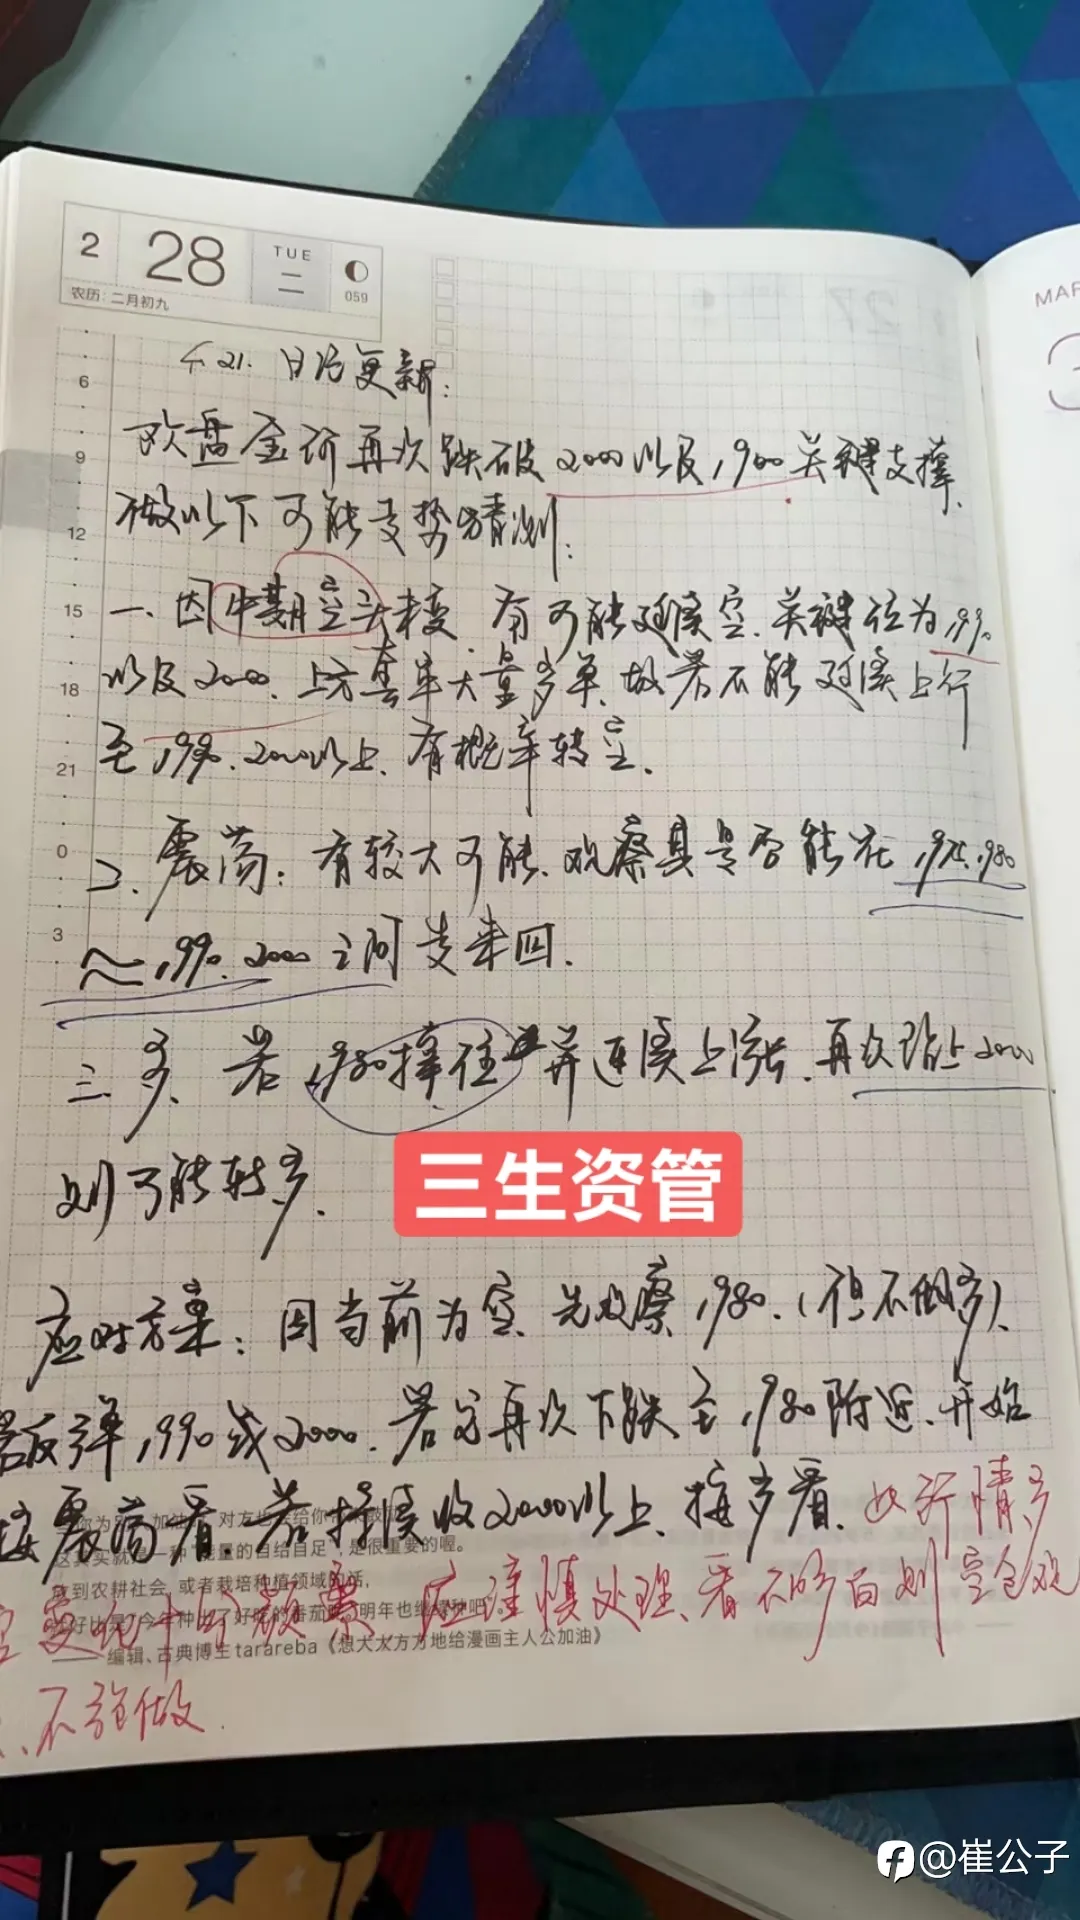 2 28 TUE 二 059
农历:二月初九
MAR
3
4.21. 日内更新:
6
欧盘金价再次跌破2000以及1990关键支撑.
9
做以下可能走势猜测:
12
一.因中期空头未变.有可能延续空.关键位为1990
15
以及2000.上方套牢大量多单.故若不能延续上行
18
至1990.2000以上.有概率转空.
21
二.震荡:有较大可能.观察其是否能在1975.1980
0
~1990.2000之间走来回.
3
三.多.若1980撑住 并连续上涨.再次站上2000
则可能转多.
三生资管
应对方案:因当前为空.先观察1980.(但不做多).
若反弹1990或2000.若又再次下跌至1980附近.开始
按震荡看.若持续收2000以上.按多看.此行情多
空变化十分频繁.应谨慎处理.看不明白则空仓观
.不强做.
这其实就是一种"能量的自给自足",是很重要的喔。
放到农耕社会,或者栽培种植领域的话,
编辑、古典博主tarareba《想大大方方地给漫画主人公加油》
@崔公子